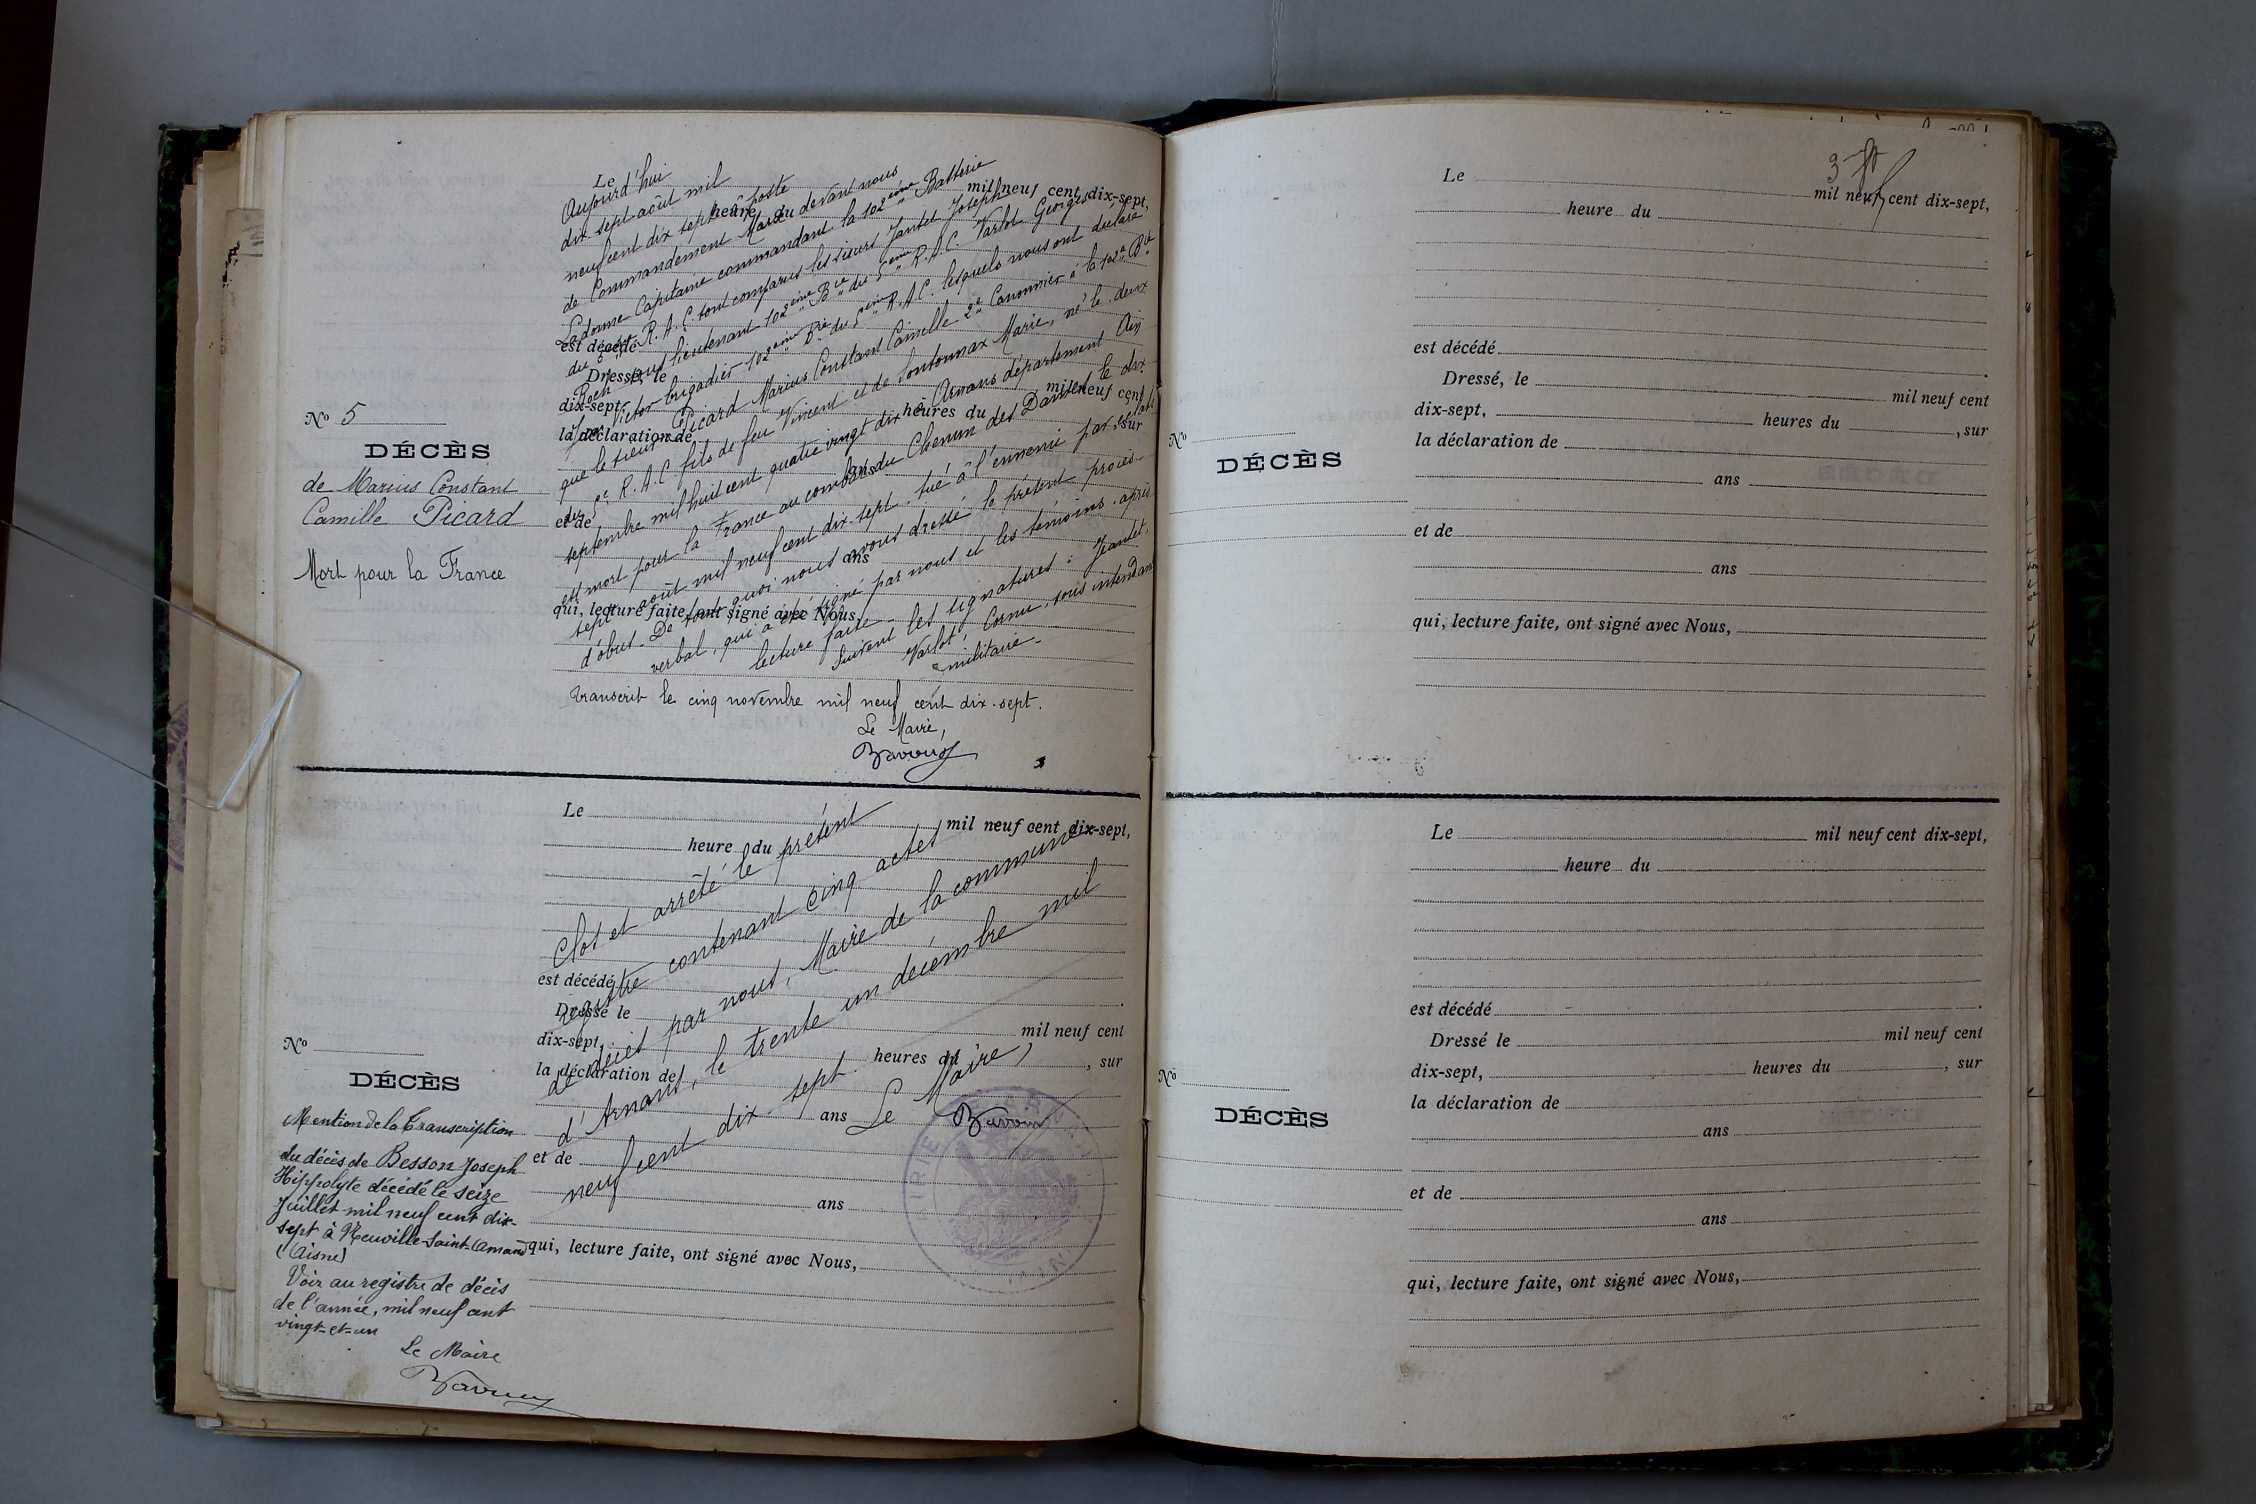 Nº 5
DÉCÈS
de Marius Constant
Camille Picard
Mort pour la France
Le mil neuf cent dix-sept,
heure du
est décédé
Dressé, le
dix-sept, heures du mil neuf cent
la déclaration de , sur
et de ans
ans
qui, lecture faite, ont signé avec Nous,
Aujourd'hui
dix-sept août mil
neuf cent dix sept à poste
de Commandement devant nous
Capitaine commandant la 102ème Batterie
du R.A.C. sont comparus les sieurs Jantet Joseph
sous lieutenant 102ème Bie du 5ème R.A.C. Varlot Georges
Victor brigadier 102ème Bie du 5ème R.A.C. lesquels nous ont déclaré
que le sieur Picard Marius Constant Camille 2e Canonnier à la 102e Bie
du 5e R.A.C fils de feu Vincent et de Marie, né le deux
septembre mil huit cent quatre vingt dix à Arnans département Ain
est mort pour la France au combat du Chemin des Dames le dix
sept août mil neuf cent dix-sept tué à l'ennemi par éclats
d'obus. De tout quoi nous avons dressé le présent procès
verbal, qui a été signé par nous et les témoins après
lecture faite.
Suivent les signatures : Jeantet,
Varlot, Cornu, sous intendant
militaire.
Transcrit le cinq novembre mil neuf cent dix-sept.
Le Maire,
Nº
DÉCÈS
Mention de la Transcription
du décès de Besson Joseph
Hippolyte décédé le seize
Juillet mil neuf cent dix-
sept à Neuville-Saint-Amand
(Aisne)
Voir au registre de décès
de l'année, mil neuf cent
vingt-et-un
Le Maire
Le mil neuf cent dix-sept,
heure du
est décédé
Dressé le mil neuf cent
dix-sept, heures du , sur
la déclaration de
ans
et de
ans
qui, lecture faite, ont signé avec Nous,
Clos et arrêté le présent
registre contenant cinq actes
de décès par nous, Maire de la commune
d'Arnans, le trente un décembre mil
neuf cent dix-sept.
Le Maire,
Nº
DÉCÈS
Le mil neuf cent dix-sept,
heure du
est décédé
Dressé, le mil neuf cent
dix-sept, heures du , sur
la déclaration de
ans
et de
ans
qui, lecture faite, ont signé avec Nous,
Nº
DÉCÈS
Le mil neuf cent dix-sept,
heure du
est décédé
Dressé le mil neuf cent
dix-sept, heures du , sur
la déclaration de
ans
et de
ans
qui, lecture faite, ont signé avec Nous,